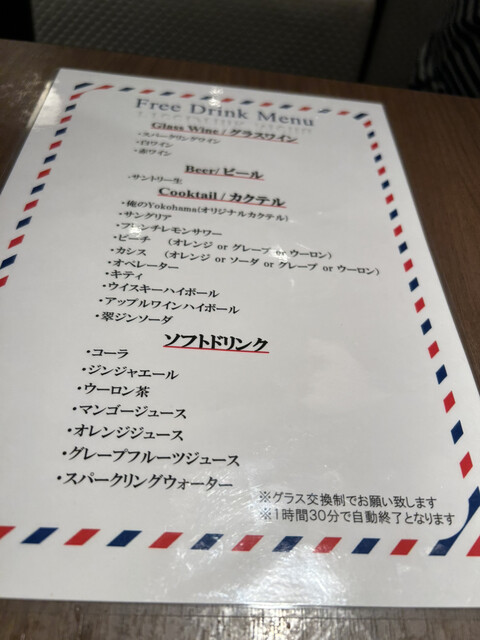 Free Drink Menu
Glass Wine / グラスワイン
・スパークリングワイン
・白ワイン
・赤ワイン
Beer/ビール
・サントリー生
Cooktail / カクテル
・俺のYokohama(オリジナルカクテル)
・サングリア
・フレンチレモンサワー
・ピーチ (オレンジ or グレープ or ウーロン)
・カシス (オレンジ or ソーダ or グレープ or ウーロン)
・オペレーター
・キティ
・ウイスキーハイボール
・アップルワインハイボール
・翠ジンソーダ
ソフトドリンク
・コーラ
・ジンジャエール
・ウーロン茶
・マンゴージュース
・オレンジジュース
・グレープフルーツジュース
・スパークリングウォーター
※グラス交換制でお願い致します
※1時間30分で自動終了となります